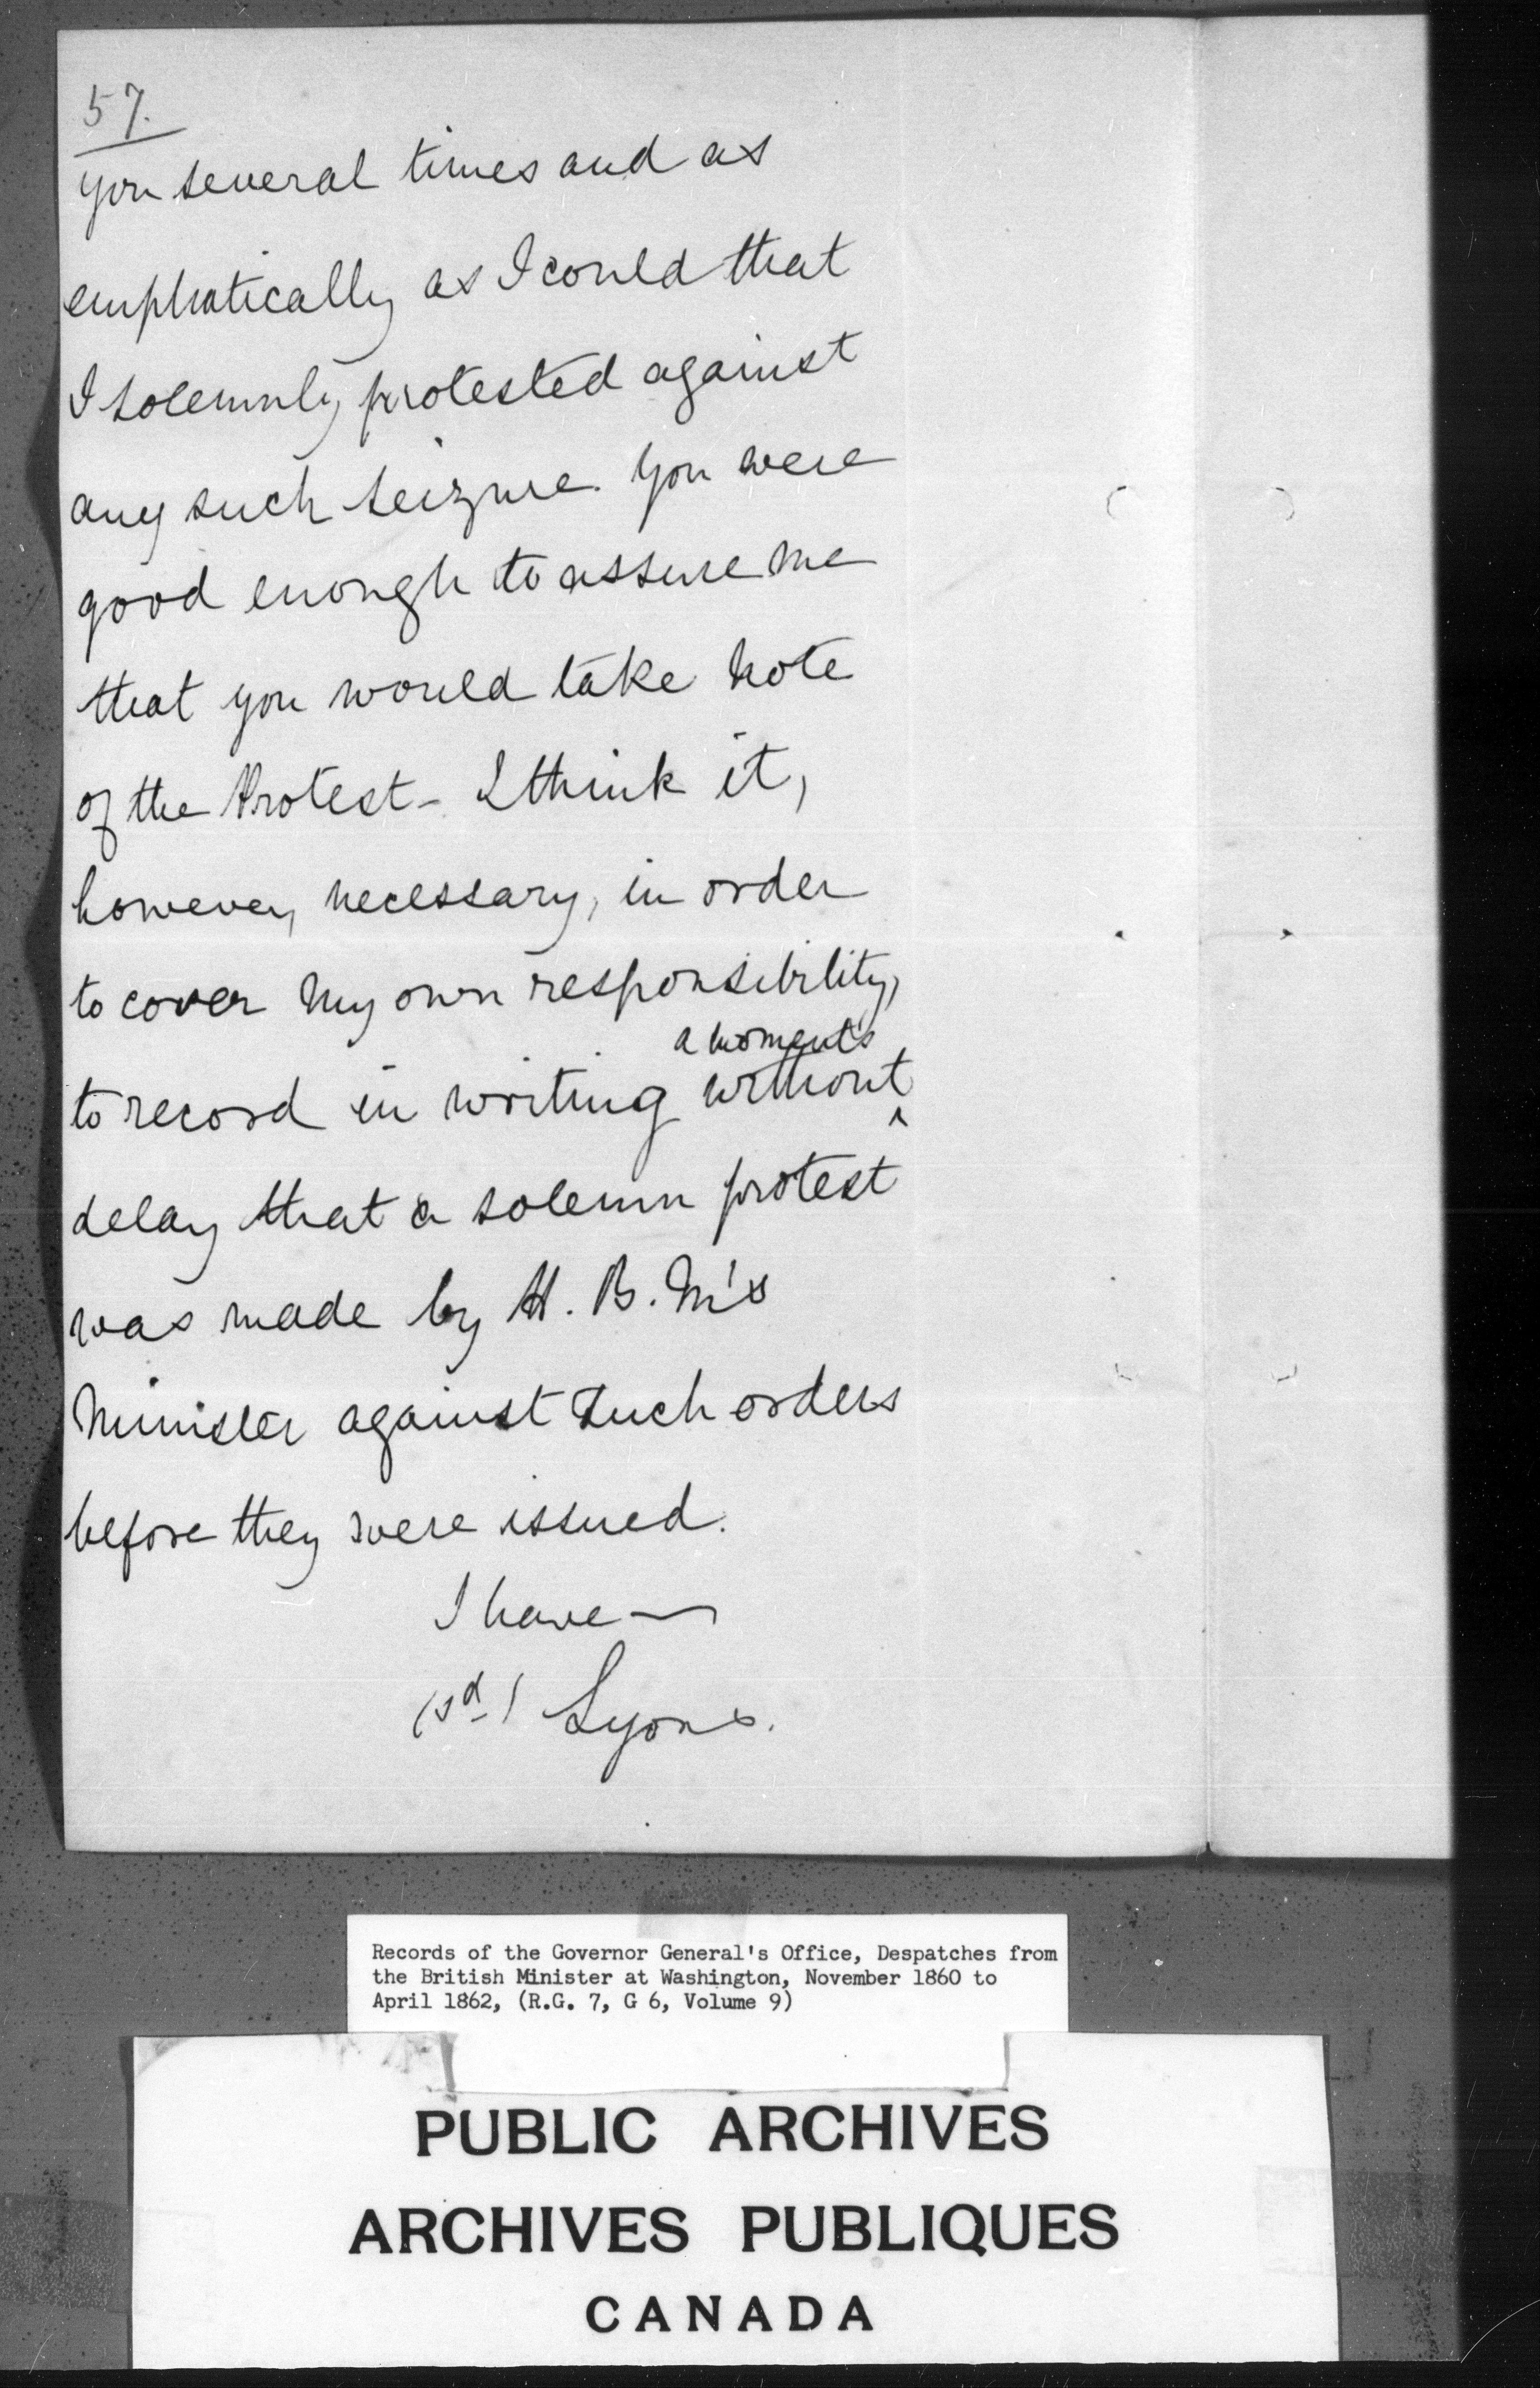 57.
you several times and as
emphatically as I could that
I solemnly protested against
any such seizure. You were
good enough to assure me
that you would take note
of the Protest - I think it,
however, necessary, in order
to cover my own responsibility,
a moment's
to record in writing without ^
delay that a solemn protest
was made by H. B. M's
Minister against such orders
before they were issued.
I have —
(sd) Lyons.
Records of the Governor General's Office, Despatches from
the British Minister at Washington, November 1860 to
April 1862, (R.G. 7, G 6, Volume 9)
PUBLIC ARCHIVES
ARCHIVES PUBLIQUES
CANADA